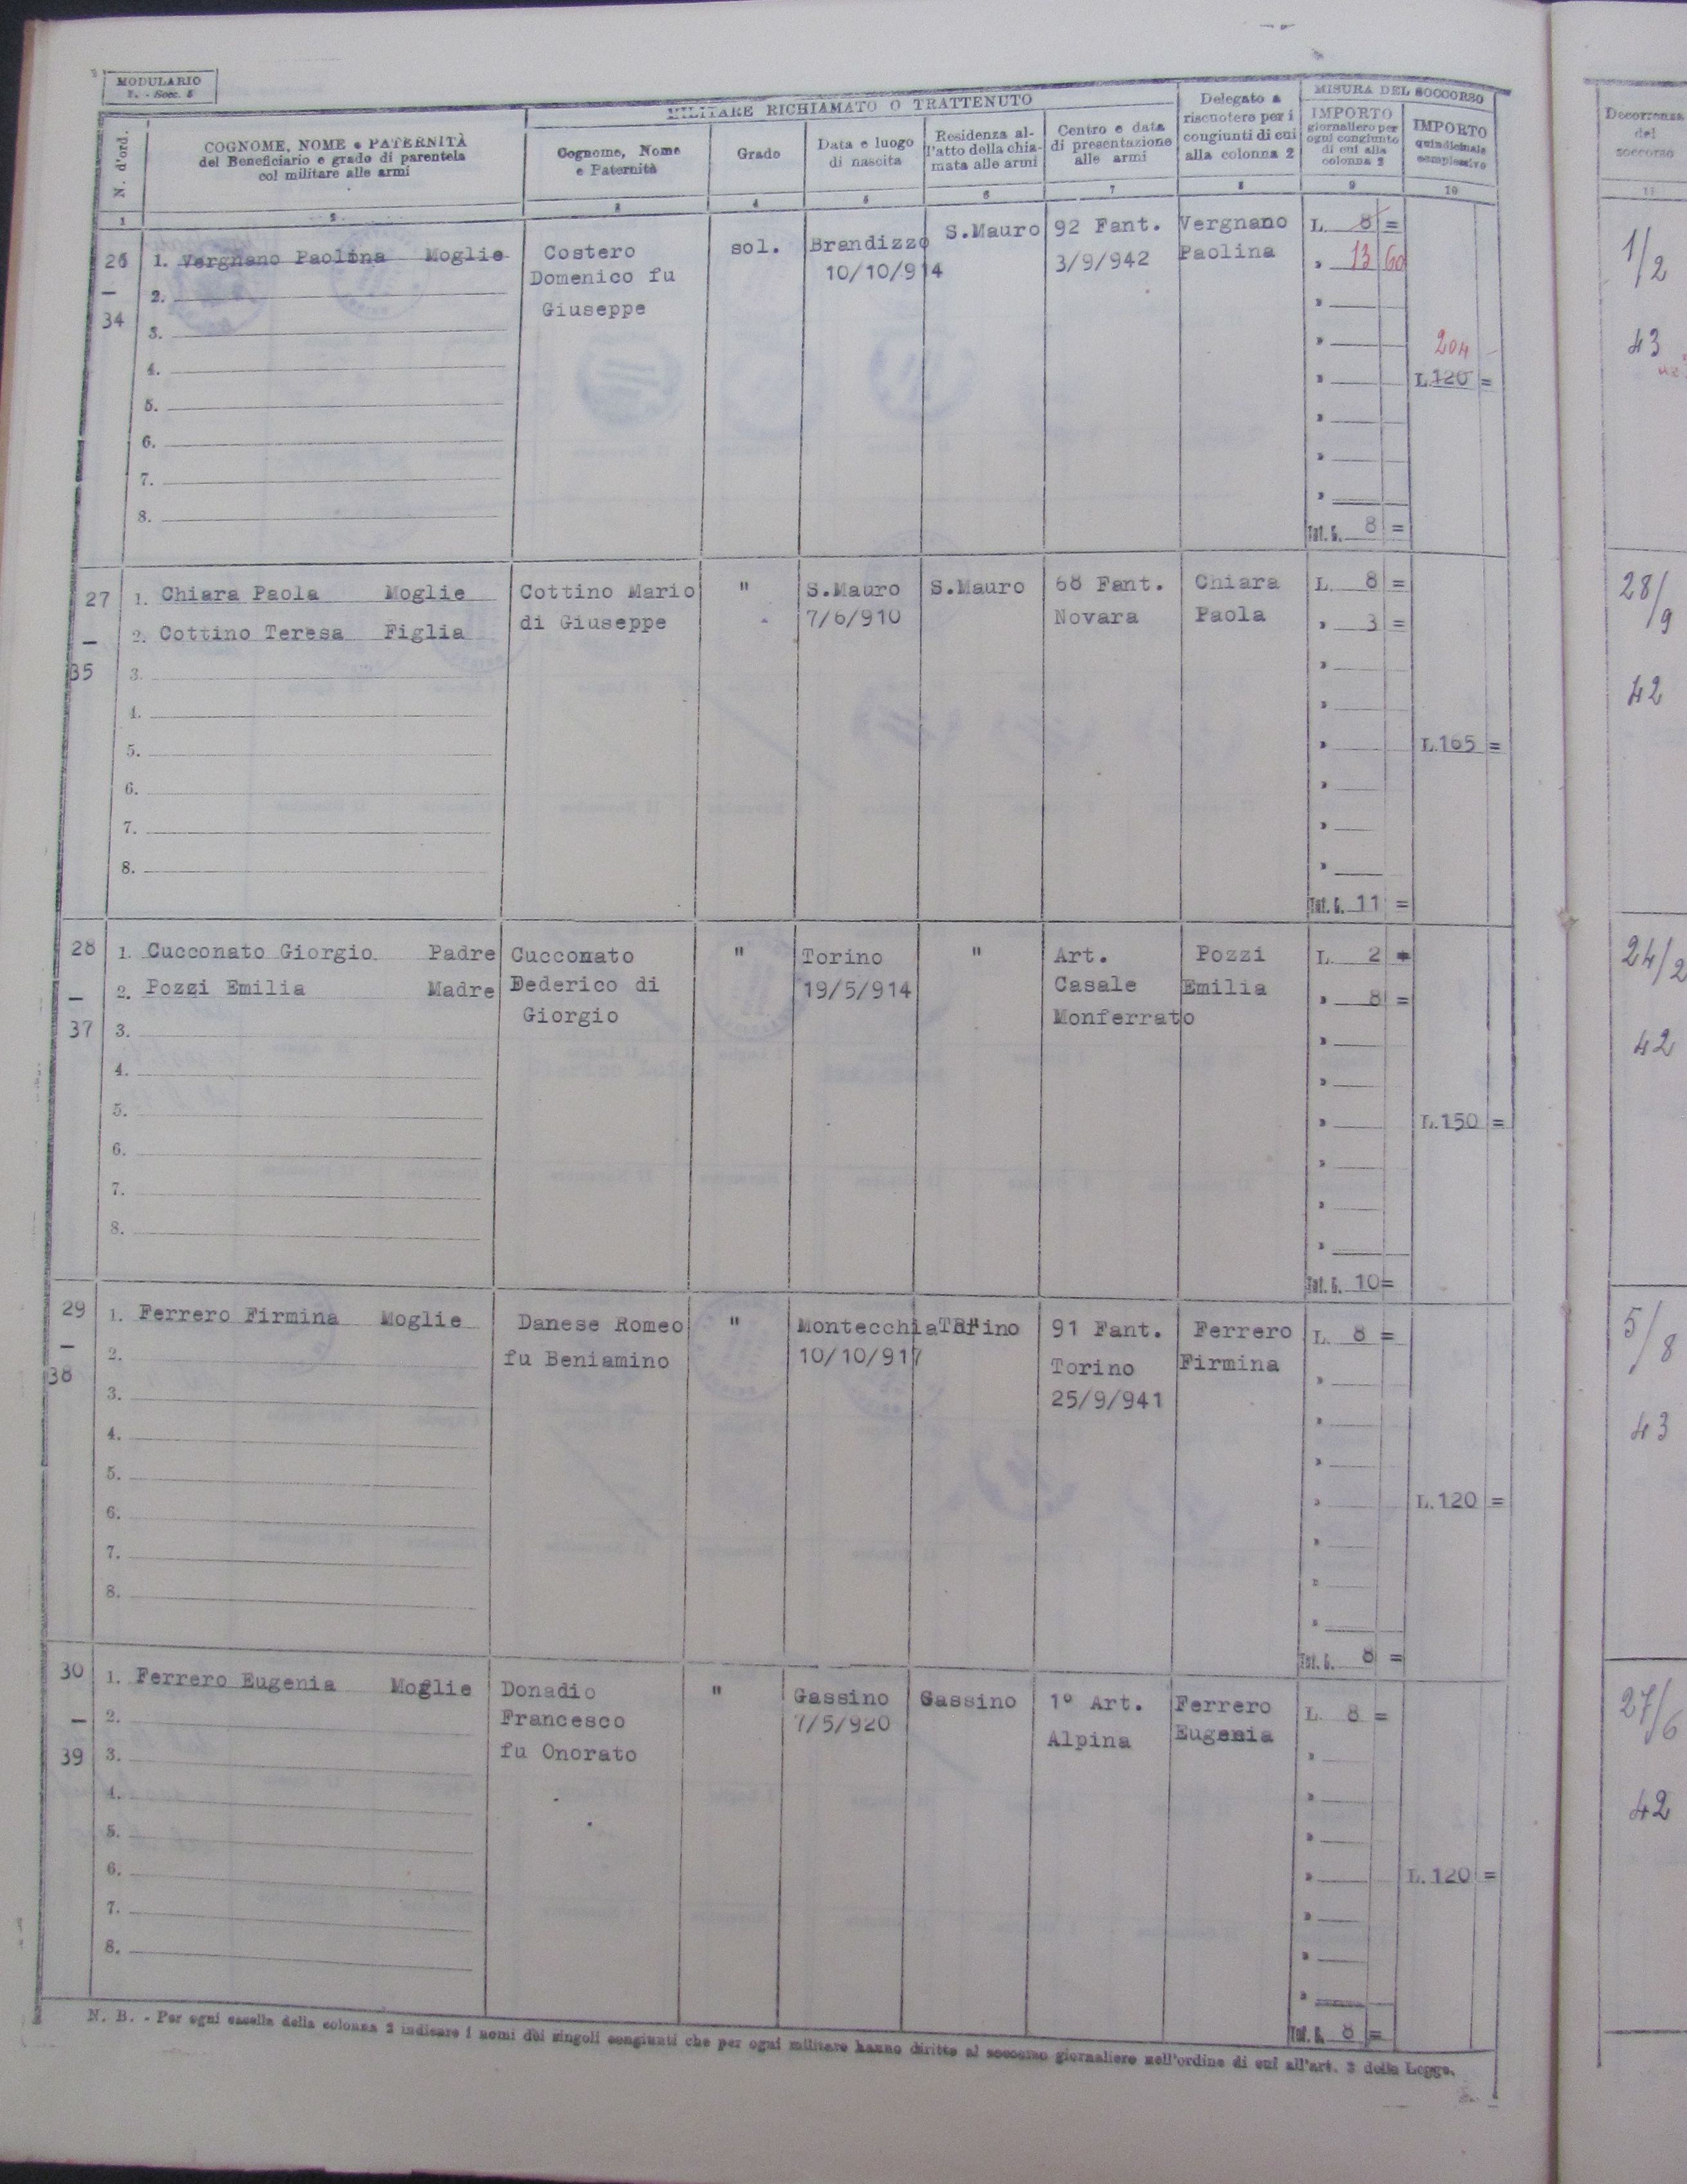 MODULARIO
F. - Socc. 5
N. d'ord.
COGNOME, NOME e PATERNITÀ
del Beneficiario e grado di parentela
col militare alle armi
MILITARE RICHIAMATO O TRATTENUTO
Cognome, Nome
e Paternità
Grado
Data e luogo
di nascita
Residenza al-
l'atto della chia-
mata alle armi
Centro e data
di presentazione
alle armi
Delegato a
riscuotere per i
congiunti di cui
alla colonna 2
MISURA DEL SOCCORSO
IMPORTO
giornaliero per
ogni congiunto
di cui alla
colonna 2
IMPORTO
quindicinale
complessivo
Decorrenza
del
soccorso
1 2 3 4 5 6 7 8 9 10 11
26
—
34
1. Vergnano Paolina Moglie
2.
3.
4.
5.
6.
7.
8.
Costero
Domenico fu
Giuseppe
sol.
Brandizzo
10/10/914
S.Mauro
92 Fant.
3/9/942
Vergnano
Paolina
L. 8 =
" 13 60
Tot. L. 8 =
204
L.120 =
1/2
43
27
—
35
1. Chiara Paola Moglie
2. Cottino Teresa Figlia
3.
4.
5.
6.
7.
8.
Cottino Mario
di Giuseppe
"
S.Mauro
7/6/910
S.Mauro
68 Fant.
Novara
Chiara
Paola
L. 8 =
" 3 =
Tot. L. 11 =
L.165 =
28/9
42
28
—
37
1. Cucconato Giorgio Padre
2. Pozzi Emilia Madre
3.
4.
5.
6.
7.
8.
Cucconato
Dederico di
Giorgio
"
Torino
19/5/914
"
Art.
Casale
Monferrato
Pozzi
Emilia
L. 2 =
" 8 =
Tot. L. 10=
L.150 =
24/2
42
29
—
38
1. Ferrero Firmina Moglie
2.
3.
4.
5.
6.
7.
8.
Danese Romeo
fu Beniamino
"
Montecchia
10/10/917
Torino
91 Fant.
Torino
25/9/941
Ferrero
Firmina
L. 8 =
Tot. L. 8 =
L.120 =
5/8
43
30
—
39
1. Ferrero Eugenia Moglie
2.
3.
4.
5.
6.
7.
8.
Donadio
Francesco
fu Onorato
"
Gassino
7/5/920
Gassino
1º Art.
Alpina
Ferrero
Eugenia
L. 8 =
Tot. L. 8 =
L.120 =
27/6
42
N. B. - Per ogni casella della colonna 2 indicare i nomi dei singoli congiunti che per ogni militare hanno diritto al soccorso giornaliero nell'ordine di cui all'art. 2 della Legge.